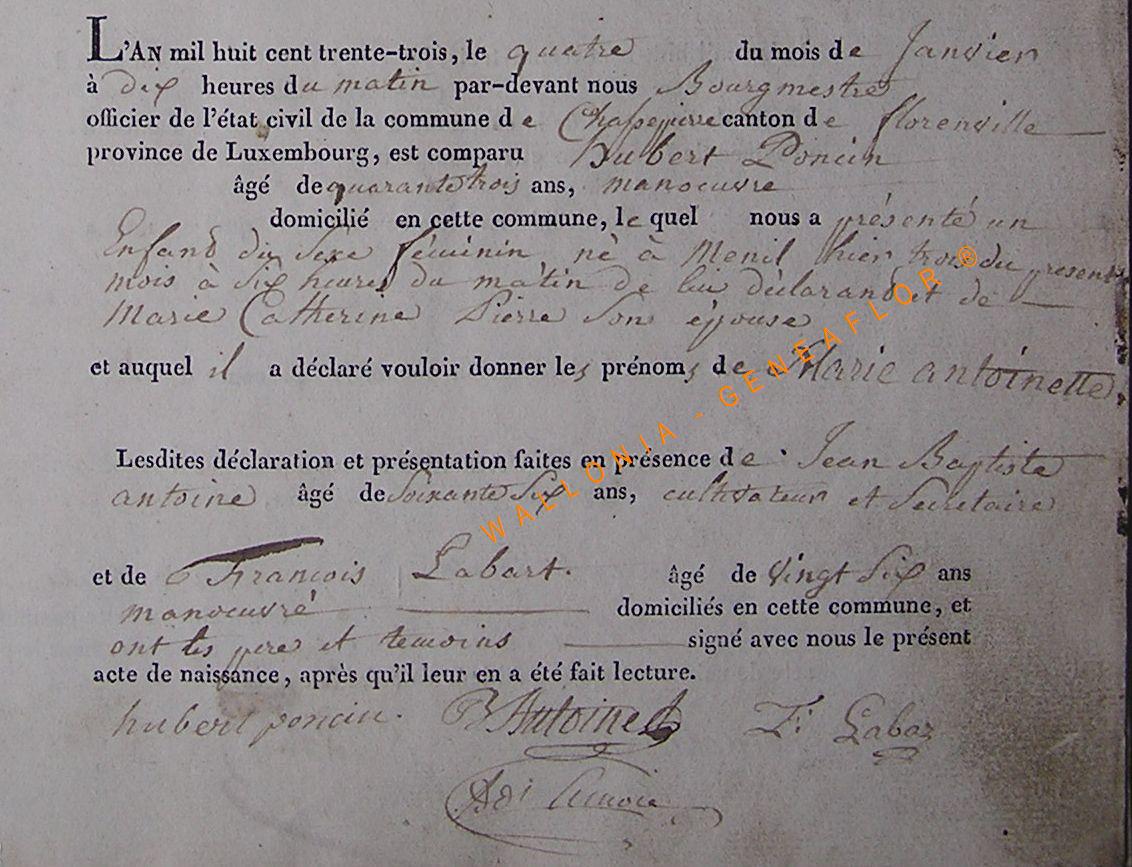 L'AN mil huit cent trente-trois, le quatre du mois de Janvier
à dix heures du matin par-devant nous Bourgmestre
officier de l'état civil de la commune de Chassepierre canton de florenville
province de Luxembourg, est comparu hubert Poncin
âgé de quarante trois ans, manoeuvre
domicilié en cette commune, le quel nous a présenté un
Enfand du Sexe féminin né à Menil hier trois du present
mois à Six heures du matin de lui déclarand et de
Marie Catherine Pierre Son épouse
et auquel il a déclaré vouloir donner les prénoms de Marie antoinette
Lesdites déclaration et présentation faites en présence de Jean Baptiste
antoine âgé de Soixante Six ans, cultivateur et Secretaire
et de François Labart. âgé de Vingt Six ans
manoeuvré domiciliés en cette commune, et
ont les pere et temoins signé avec nous le présent
acte de naissance, après qu'il leur en a été fait lecture.
hubert poncin. B Antoine F: Labaz
WALLONIA - GENEAFLOR ®